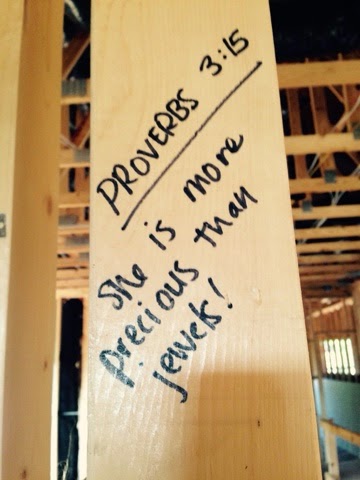 PROVERBS 3:15
She is more
precious than
jewels!